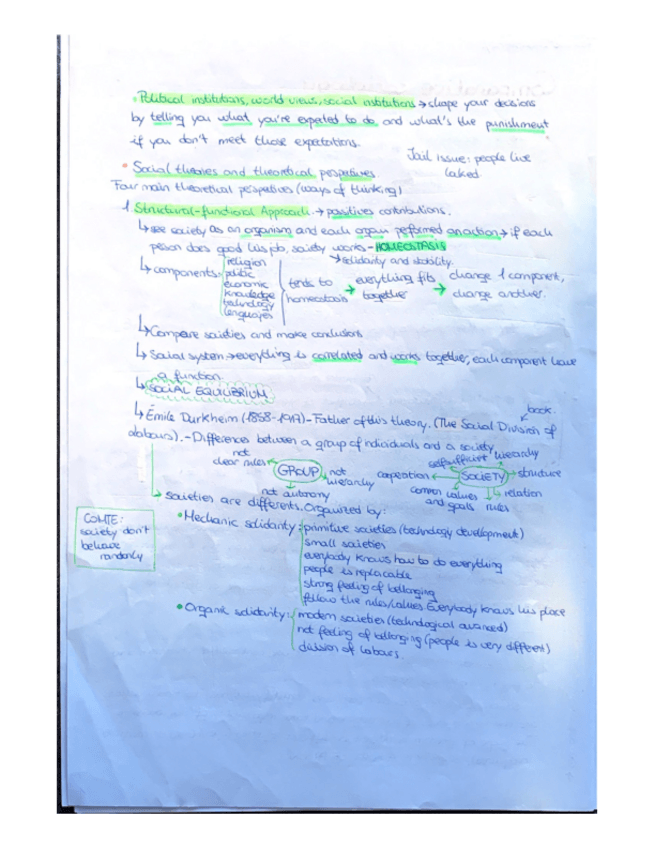 • Political institutions, world views, social institutions → shape your decisions
by telling you what you're expected to do and what's the punishment
if you don't meet those expectations.
Jail issue: people live
locked
• Social theories and theoretical perspetives
Four main theoretical perspetives (ways of thinking)
1. Structural-functional Approach → positives contributions.
↳ see society as an organism and each organ performed an action → if each
person does good his job, society works - HOMEOSTASIS
→ solidarity and stability.
↳ components:
religion
politic
economic
knowledge
technology
lenguajes
tends to
homeostasis
→ everything fits
together
→ change 1 component,
change another.
↳ Compare societies and make conclusions
↳ Social system → everything is correlated and works together, each component have
a function
↳ SOCIAL EQUILIBRIUM
book.
↳ Émile Durkheim (1858-1917) - Father of this theory. (The Social Division of
labours). - Differences between a group of individuals and a society
not
clear rules
GROUP
not
hierarchy
not autonomy
cooperation
selfsufficient
hierarchy
SOCIETY
structure
common values
and goals
rules
relation
↳ societies are differents. Organized by:
COMTE:
society don't
behave
randomly
• Mechanic solidarity:
primitive societies (technology development)
small societies
everybody knows how to do everything
people is replacable
strong feeling of bellonging
follow the rules/values. Everybody knows his place
• Organic solidarity:
modern societies (technological avanced)
not feeling of bellonging (people is very different)
division of labours.